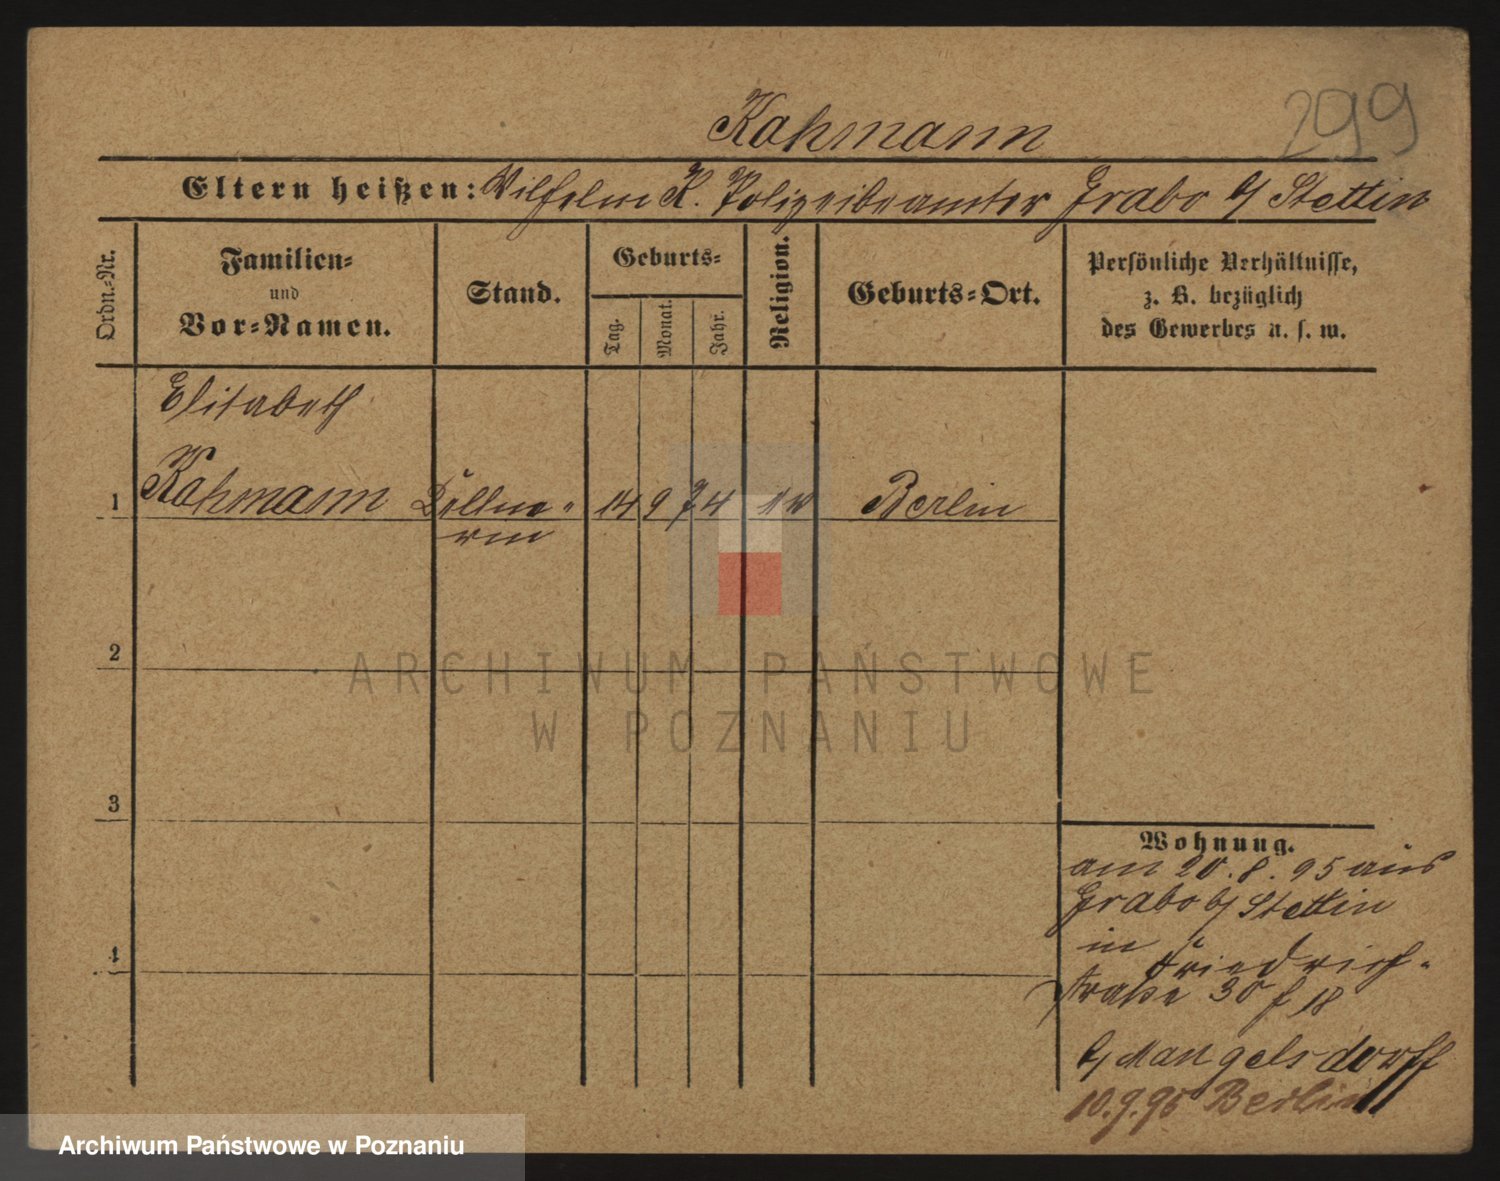 299
Kahmann
Eltern heißen: Wilhelm K. Polizeibeamter Grabo b/ Stettin
Ordn.-Nr.
Familien-
und
Vor-Namen.
Stand.
Geburts-
Tag.
Monat.
Jahr.
Religion.
Geburts-Ort.
Persönliche Verhältnisse,
z. B. bezüglich
des Gewerbes u. s. w.
Elisabeth
1 Kahmann 14 9 74 Berlin
2
3
4
Wohnung.
am 20. 8. 95 aus
Grabo b/ Stettin
in Friedrich-
straße 30
b/ Mangelsdorff
10.9.95 Berlin
ARCHIWUM PAŃSTWOWE
W POZNANIU
Archiwum Państwowe w Poznaniu